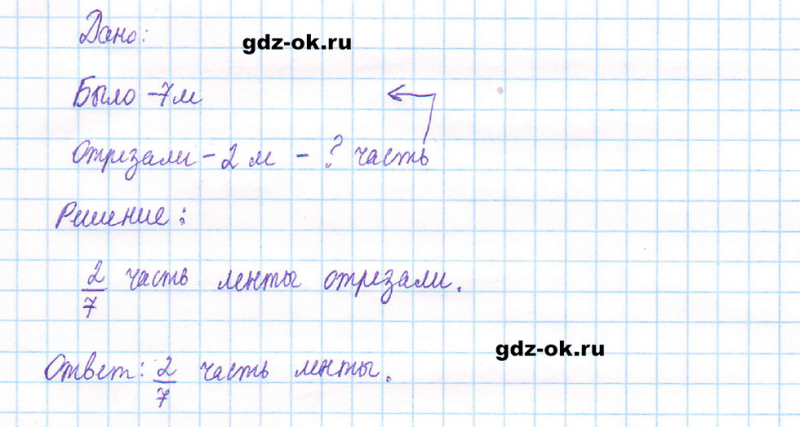 Дано:
gdz-ok.ru
Было - 7 м
Отрезали - 2 м - ? часть
Решение:
2/7 часть ленты отрезали.
gdz-ok.ru
Ответ: 2/7 часть ленты.